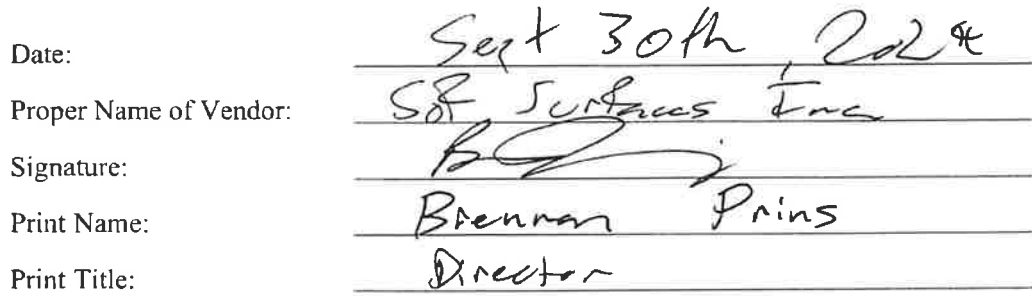 Date: Sept 30th, 2024
Proper Name of Vendor: Soft Surfaces Inc
Signature:
Print Name: Brennan Prins
Print Title: Director